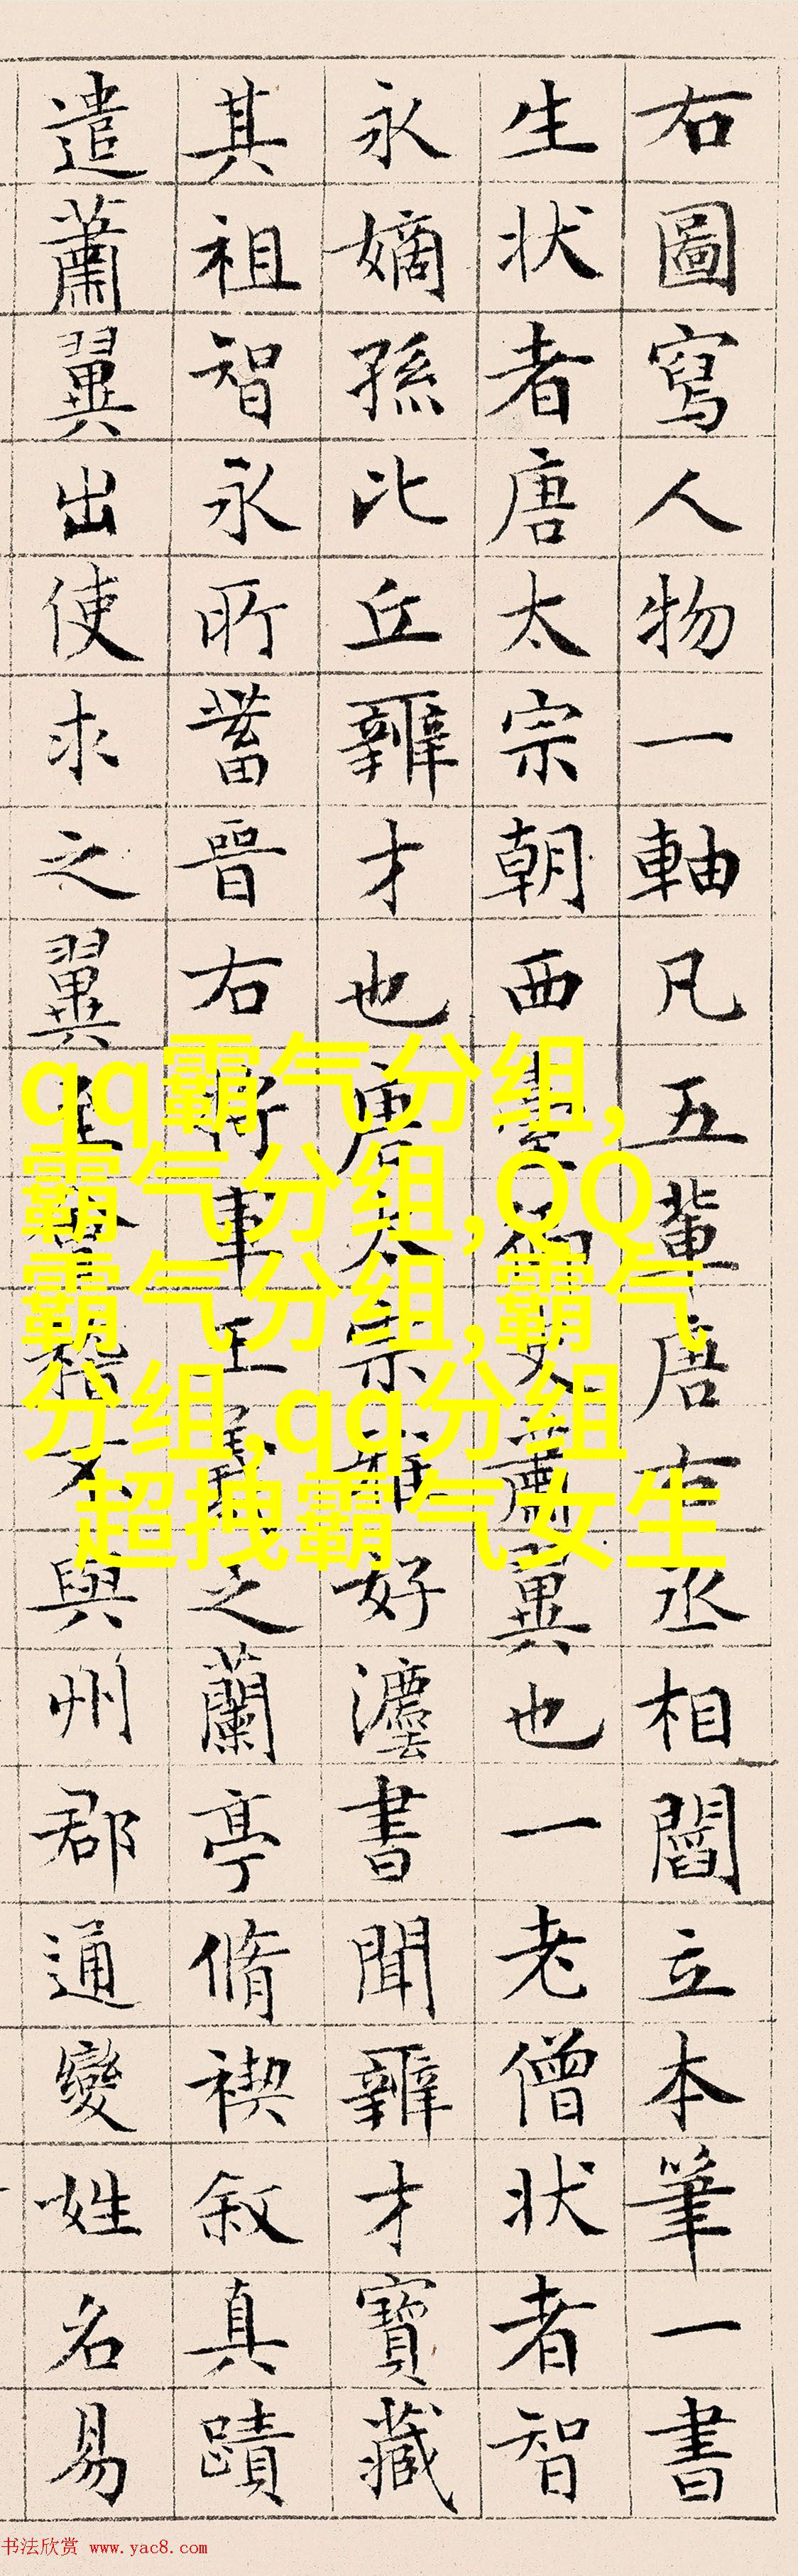 右圖寫人物一軸凡五輩唐右丞相閻立本筆一書
生状者唐太宗朝西臺御史蕭翼也一老僧状者智
永嫡孫比丘辯才也唐太宗雅好灋書聞辯才寶藏
其祖智永所蓄晉右將軍王羲之蘭亭脩禊叙真蹟
遣蕭翼出使求之翼至會稽不與州郡通變姓名易
qq霸气分组,
霸气分组,QQ
霸气分组,霸气
分组,qq分组
超拽霸气女生
书法欣赏 www.yac8.com